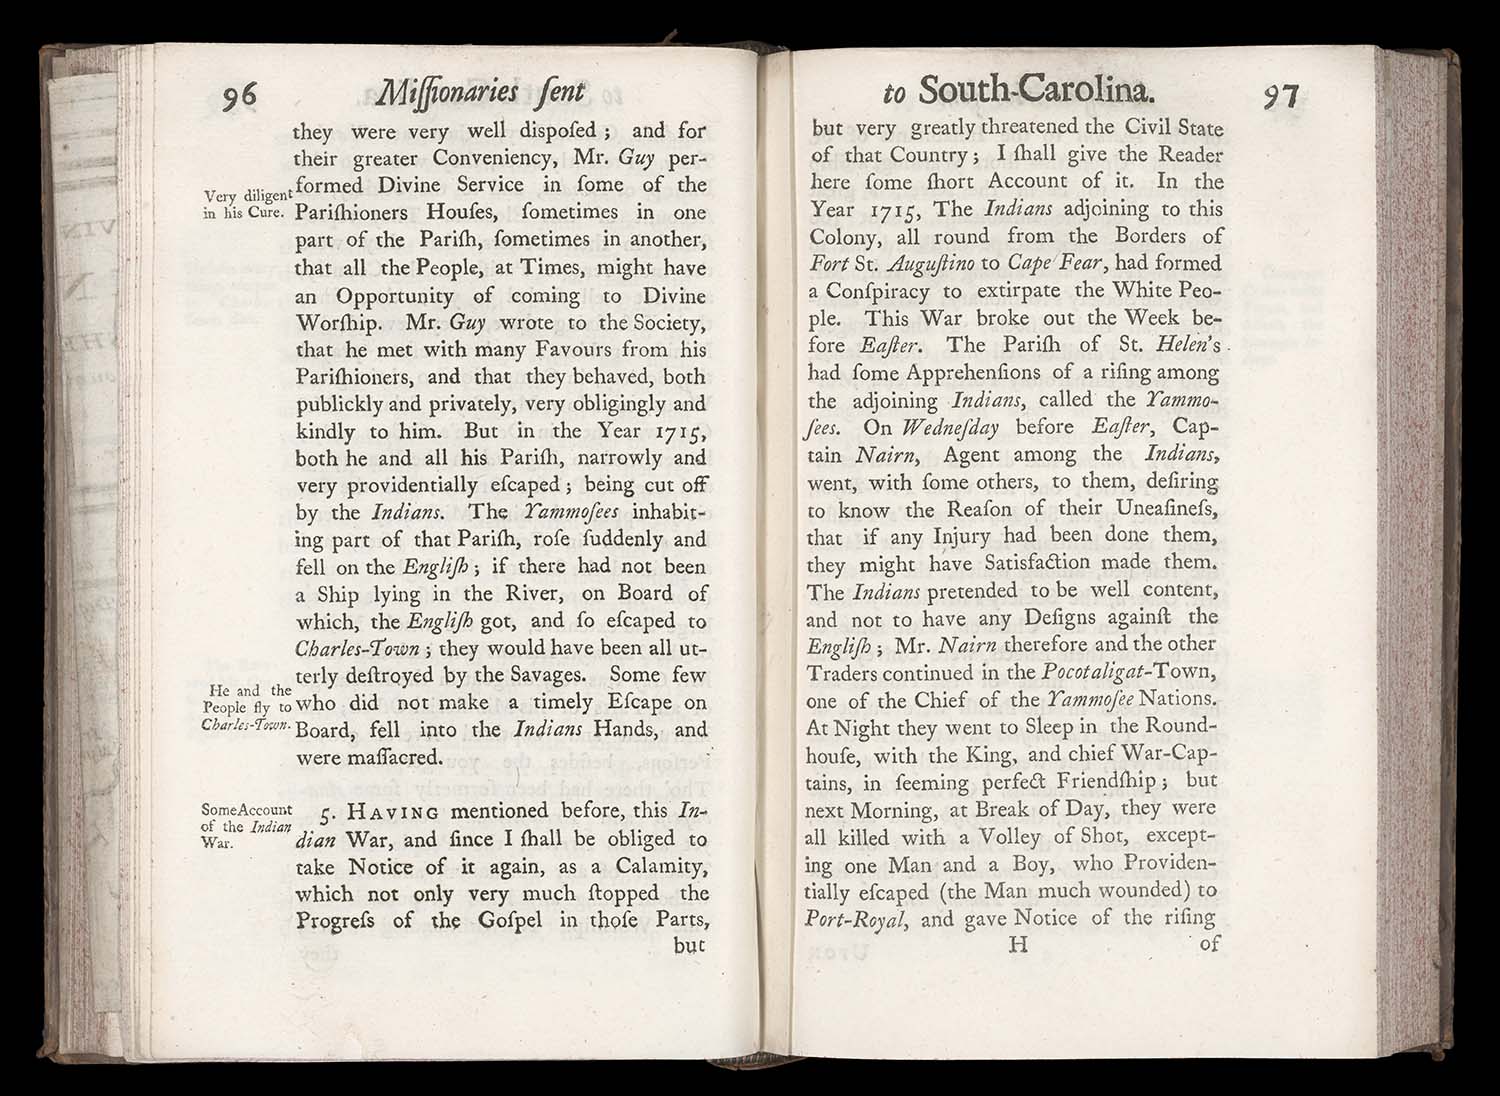 96 Miſſionaries ſent
they were very well diſpoſed ; and for
their greater Conveniency, Mr. Guy per-
Very diligent
in his Cure.
formed Divine Service in ſome of the
Pariſhioners Houſes, ſometimes in one
part of the Pariſh, ſometimes in another,
that all the People, at Times, might have
an Opportunity of coming to Divine
Worſhip. Mr. Guy wrote to the Society,
that he met with many Favours from his
Pariſhioners, and that they behaved, both
publickly and privately, very obligingly and
kindly to him. But in the Year 1715,
both he and all his Pariſh, narrowly and
very providentially eſcaped ; being cut off
by the Indians. The Yammoſees inhabit-
ing part of that Pariſh, roſe ſuddenly and
fell on the Engliſh ; if there had not been
a Ship lying in the River, on Board of
which, the Engliſh got, and ſo eſcaped to
Charles-Town ; they would have been all ut-
terly deſtroyed by the Savages. Some few
He and the
People fly to
Charles-Town.
who did not make a timely Eſcape on
Board, fell into the Indians Hands, and
were maſſacred.
Some Account
of the Indian
War.
5. HAVING mentioned before, this In-
dian War, and ſince I ſhall be obliged to
take Notice of it again, as a Calamity,
which not only very much ſtopped the
Progreſs of the Goſpel in thoſe Parts,
but
to South-Carolina. 97
but very greatly threatened the Civil State
of that Country ; I ſhall give the Reader
here ſome ſhort Account of it. In the
Year 1715, The Indians adjoining to this
Colony, all round from the Borders of
Fort St. Auguſtino to Cape Fear, had formed
a Conſpiracy to extirpate the White Peo-
ple. This War broke out the Week be-
fore Eaſter. The Pariſh of St. Helen's
had ſome Apprehenſions of a riſing among
the adjoining Indians, called the Yammo-
ſees. On Wedneſday before Eaſter, Cap-
tain Nairn, Agent among the Indians,
went, with ſome others, to them, deſiring
to know the Reaſon of their Uneaſineſs,
that if any Injury had been done them,
they might have Satisfaction made them.
The Indians pretended to be well content,
and not to have any Deſigns againſt the
Engliſh ; Mr. Nairn therefore and the other
Traders continued in the Pocotaligat-Town,
one of the Chief of the Yammoſee Nations.
At Night they went to Sleep in the Round-
houſe, with the King, and chief War-Cap-
tains, in ſeeming perfect Friendſhip ; but
next Morning, at Break of Day, they were
all killed with a Volley of Shot, except-
ing one Man and a Boy, who Providen-
tially eſcaped (the Man much wounded) to
Port-Royal, and gave Notice of the riſing
H of